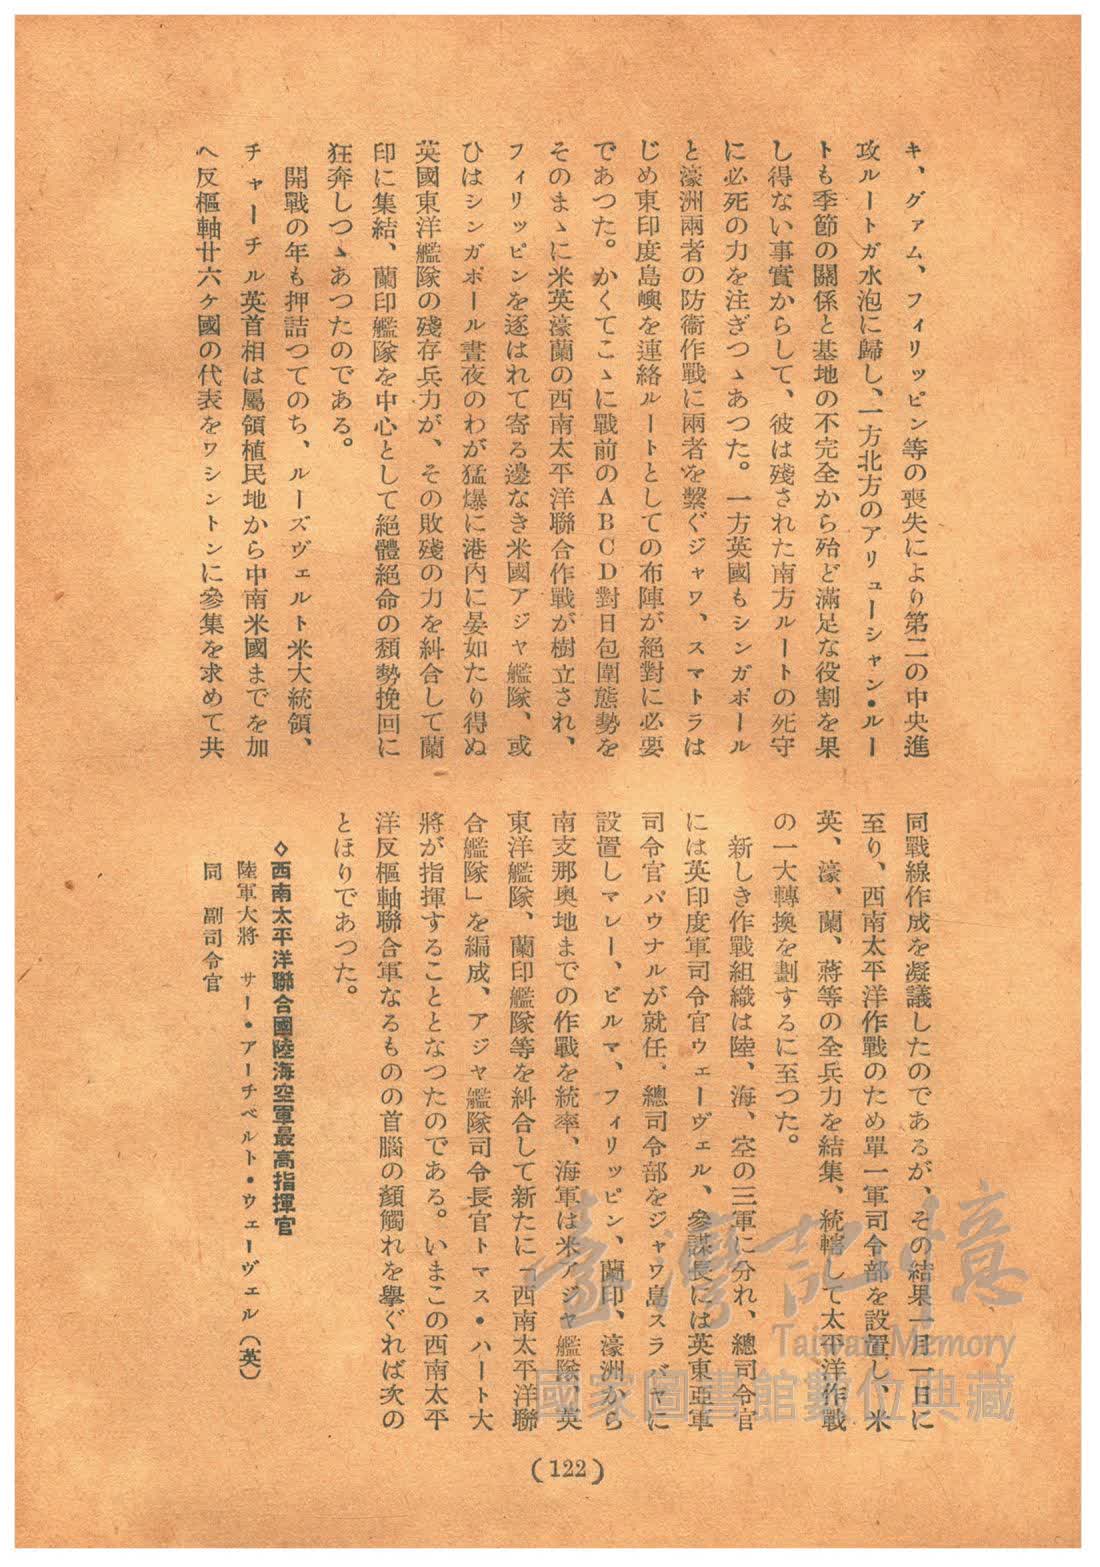 キ、グァム、フィリッピン等の喪失により第二の中央進
攻ルートガ水泡に歸し、一方北方のアリューシャン・ルー
トも季節の關係と基地の不完全から殆ど滿足な役割を果
し得ない事實からして、彼は殘された南方ルートの死守
に必死の力を注ぎつゝあつた。一方英國もシンガポール
と濠洲兩者の防衞作戰に兩者を繫ぐジャワ、スマトラは
じめ東印度島嶼を連絡ルートとしての布陣が絕對に必要
であつた。かくてこゝに戰前のABCD對日包圍態勢を
そのまゝに米英濠蘭の西南太平洋聯合作戰が樹立され、
フィリッピンを逐はれて寄る邊なき米國アジヤ艦隊、或
ひはシンガポール晝夜のわが猛爆に港內に晏如たり得ぬ
英國東洋艦隊の殘存兵力が、その敗殘の力を糾合して蘭
印に集結、蘭印艦隊を中心として絕體絕命の頽勢挽回に
狂奔しつゝあつたのである。
開戰の年も押詰つてのち、ルーズヴェルト米大統領、
チャーチル英首相は屬領植民地から中南米國までを加
へ反樞軸廿六ヶ國の代表をワシントンに參集を求めて共
同戰線作成を凝議したのであるが、その結果一月一日に
至り、西南太平洋作戰のため單一軍司令部を設置し、米
英、濠、蘭、蔣等の全兵力を結集、統轄して太平洋作戰
の一大轉換を劃するに至つた。
新しき作戰組織は陸、海、空の三軍に分れ、總司令官
には英印度軍司令官ウェーヴェル、參謀長には英東亞軍
司令官パウナルが就任、總司令部をジャワ島スラバヤに
設置しマレー、ビルマ、フィリッピン、蘭印、濠洲から
南支那奧地までの作戰を統率、海軍は米アジヤ艦隊、英
東洋艦隊、蘭印艦隊等を糾合して新たに「西南太平洋聯
合艦隊」を編成、アジヤ艦隊司令長官トマス・ハート大
將が指揮することとなつたのである。いまこの西南太平
洋反樞軸聯合軍なるものの首腦の顏觸れを擧ぐれば次の
とほりであつた。
◇西南太平洋聯合國陸海空軍最高指揮官
陸軍大將 サー・アーチベルト・ウェーヴェル(英)
同 副司令官
(122)
臺灣記憶
Taiwan Memory
國家圖書館數位典藏